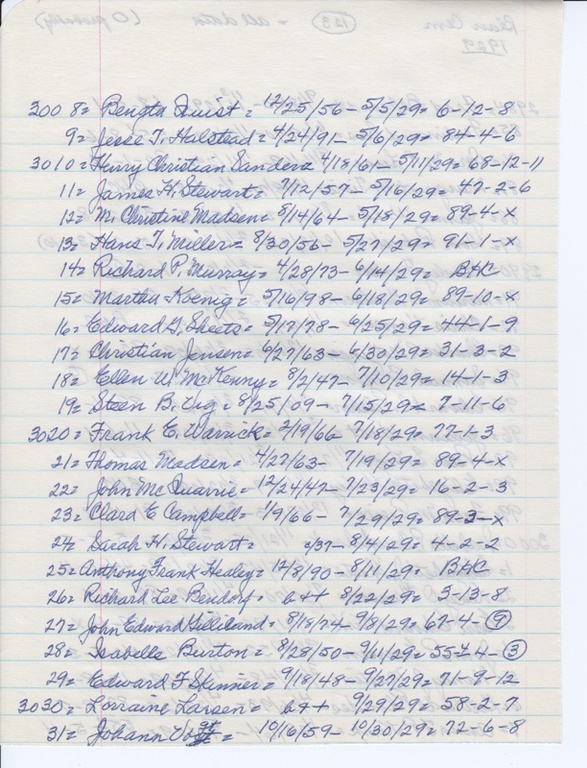 3008= Bengta Quist = 12/25/56 – 5/5/29 = 6-12-8
9= Jesse T. Halstead = 4/24/91 – 5/6/29 = 84-4-6
3010= Henry Christian Sanders 4/18/61 – 5/11/29 = 68-12-11
11= James H. Stewart = 7/12/57 – 5/16/29 = 47-2-6
12= M. Christine Madsen = 8/14/64 – 5/18/29 = 89-4-x
13= Hans T. Miller = 8/30/56 – 5/27/29 = 91-1-x
14= Richard P. Murray = 4/28/73 – 6/14/29 = BHC
15= Martha Koenig = 5/16/98 – 6/18/29 = 89-10-x
16= Edward G. Sheets = 5/17/78 – 6/25/29 = 44-1-9
17= Christian Jensen = 6/27/63 – 6/30/29 = 31-3-2
18= Ellen W. McKenny = 8/2/47 – 7/10/29 = 14-1-3
19= Steen B. Vig = 8/25/09 – 7/15/29 = 7-11-6
3020= Frank E. Warrick = 2/19/66 7/18/29 = 77-1-3
21= Thomas Madsen = 4/27/63 – 7/19/29 = 89-4-x
22= John McQuarrie = 12/24/47 – 7/23/29 = 16-2-3
23= Clara E Campbell = 1/9/66 – 7/29/29 = 89-3-x
24= Sarah H. Stewart = /37 – 8/4/29 = 4-2-2
25= Anthony Frank Healey = 12/8/90 – 8/11/29 = BHC
26= Richard Lee Bendorf = b++ 8/22/29 = 3-13-8
27= John Edward Gilliland = 8/18/74 – 9/8/29 = 67-4-9
28= Isabelle Burton = 8/28/50 – 9/11/29 = 55-4-3
29= Edward F Skinner = 9/18/48 – 9/27/29 = 71-9-12
3030= Lorraine Larsen = b++ 9/29/29 = 58-2-7
31= Johann = 10/16/59 – 10/30/29 = 72-6-8